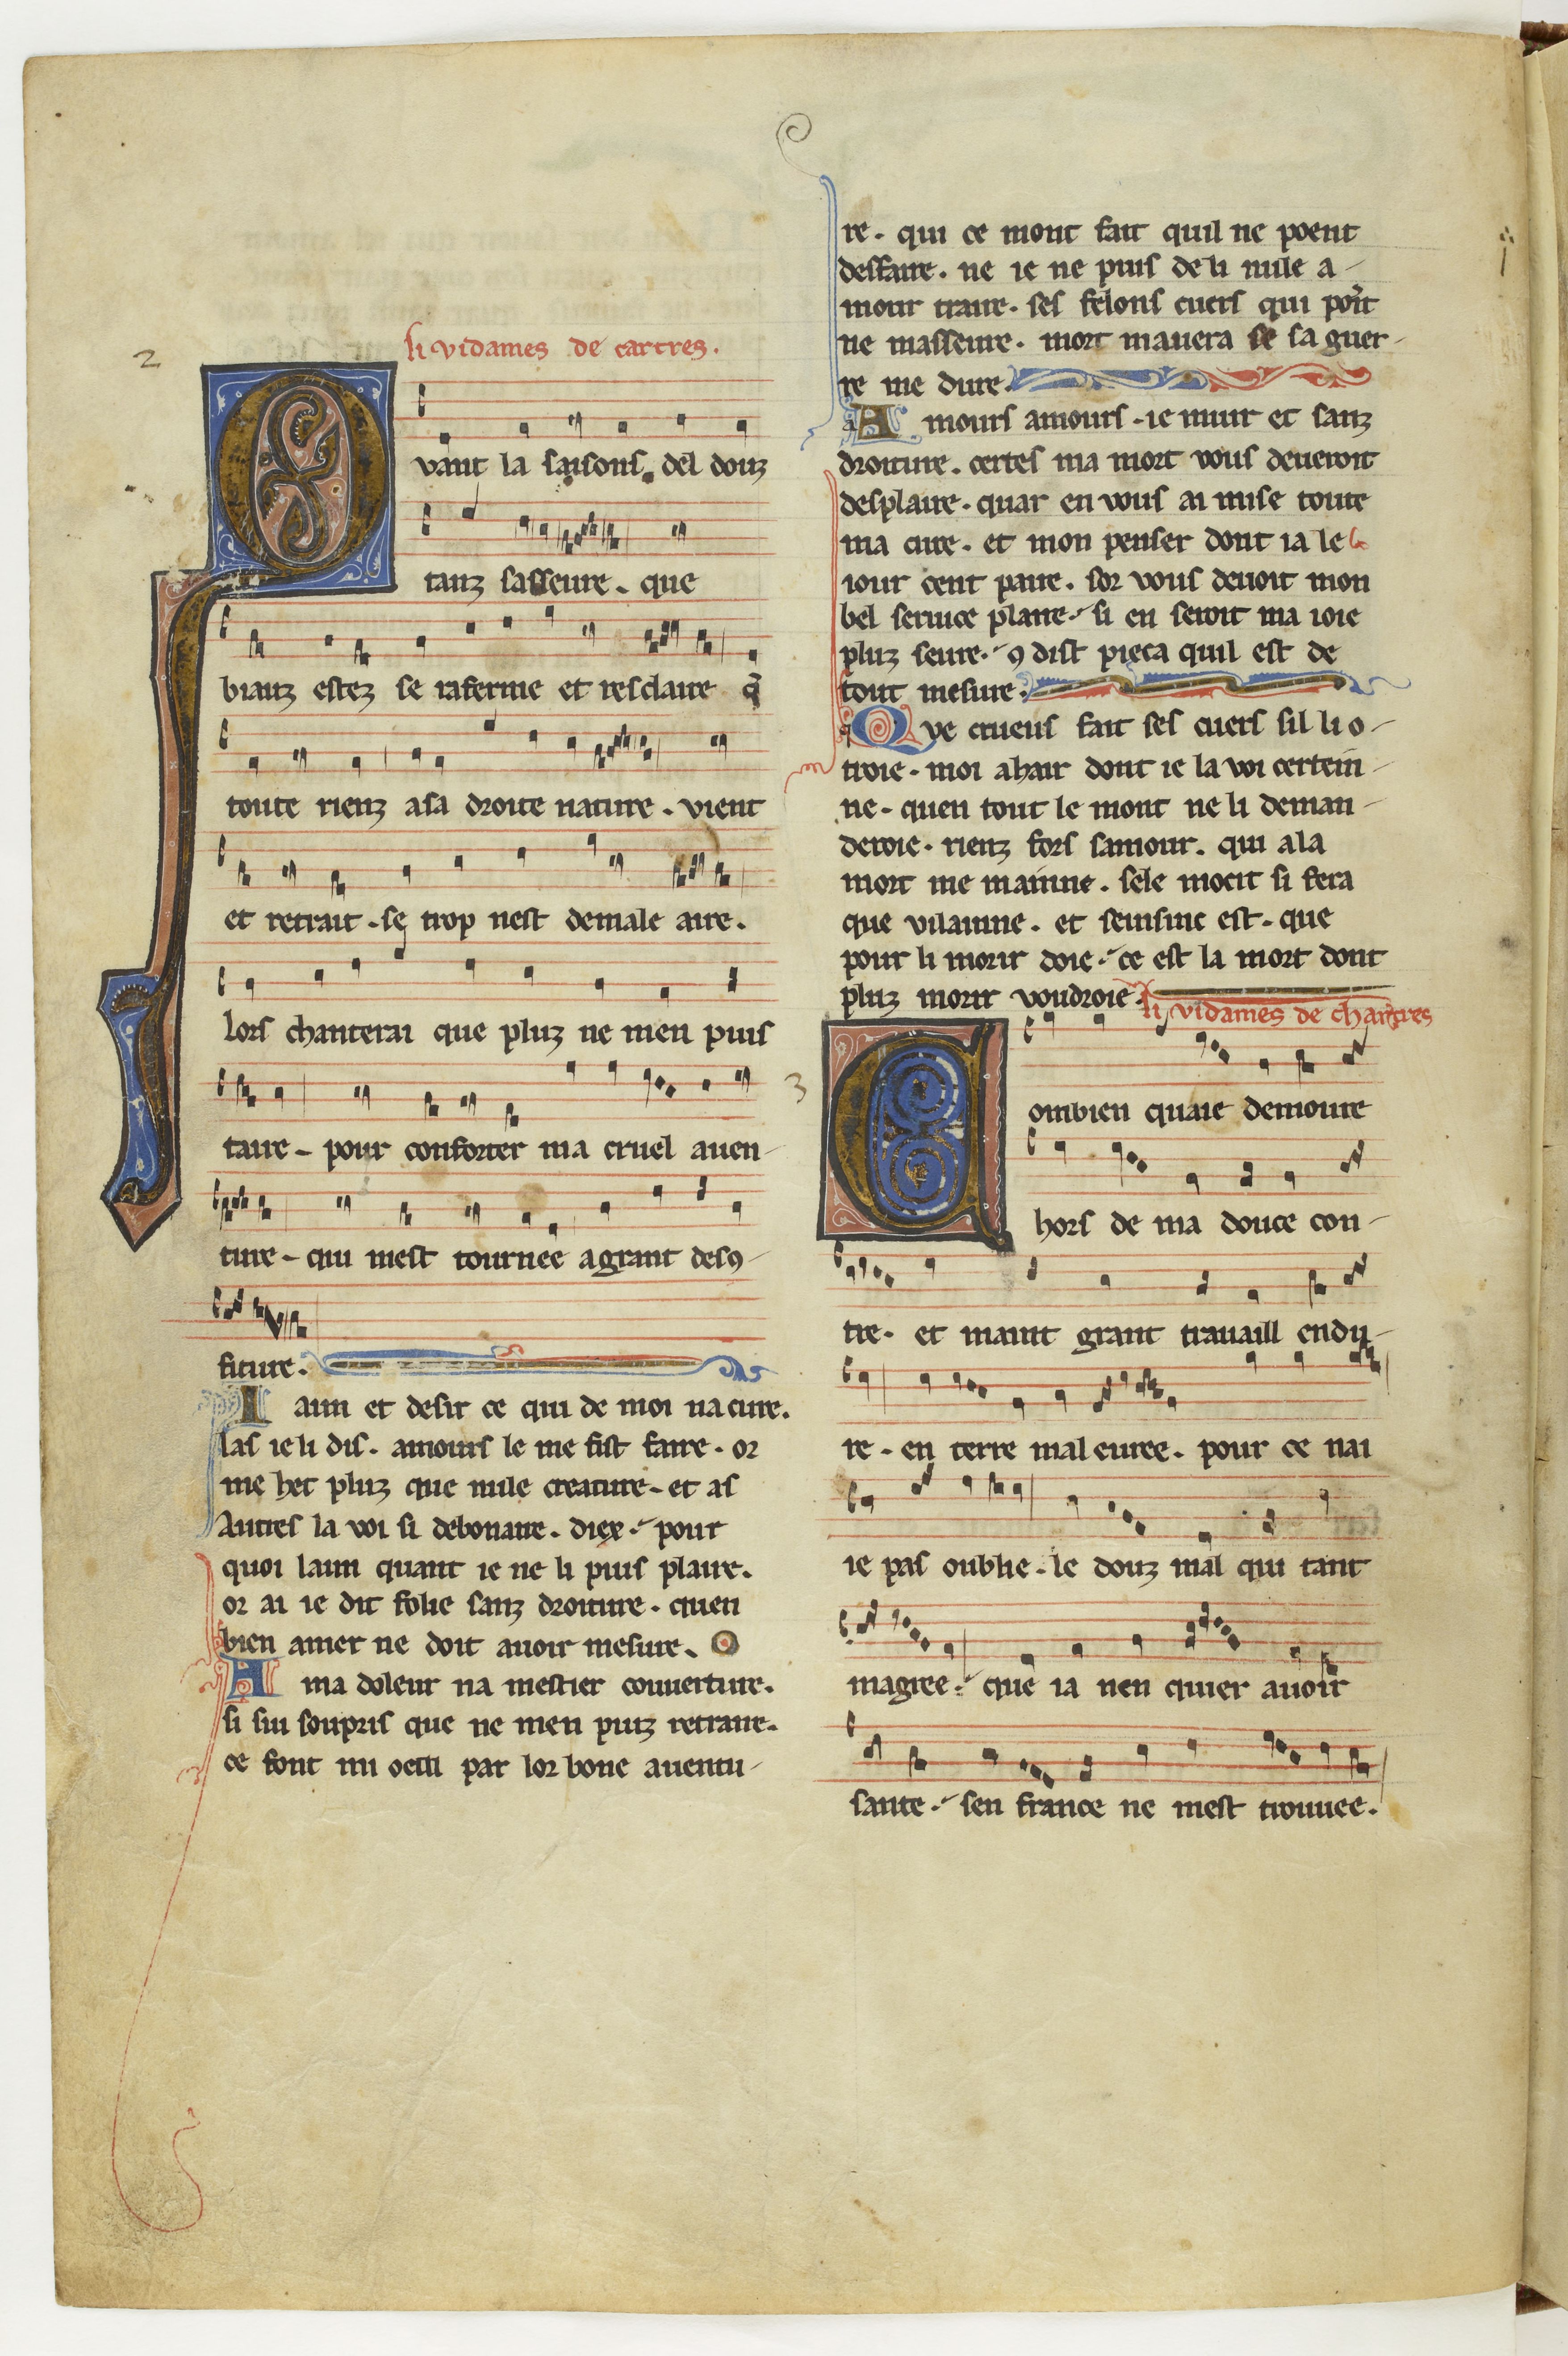 2
li vidames de cartres.
Qvant la saisons. del douz
tanz sasseure. que
biauz estez se raferme et resclaire q̃
toute rienz asa droite nature. vient
et retrait. se trop nest demale aire.
lors chanterai que pluz ne men puis
taire. pour conforter ma cruel auen-
ture. qui mest tournee agrant desꝯ-
fiture.
I aim et desir ce qui de moi na cure.
las ie li dis. amours le me fist faire. or
me het pluz que nule creature. et as
Autres la voi si debonaire. diex. pour
quoi laim quant ie ne li puis plaire.
or ai ie dit folie sanz droiture. quen
bien amer ne doit auoir mesure.
A ma doleur na mestier couuerture.
si sui soupris que ne men puiz retraire.
ce font mi oeill par lor bone auentu-
re. qui ce mont fait quil ne poent
desfaire. ne ie ne puis de li nule a-
mour traire. ses felons cuers qui point
ne masseure. mort mauera se sa guer-
re me dure.
A mours amours. ie muir et sanz
droiture. certes ma mort vous deueroit
desplaire. quar en vous ai mise toute
ma cure. et mon penser dont ia le
iour cent paire. sor vous deuoit mon
bel seruice plaire. si en seroit ma ioie
pluz seure. ꝯ dist pieca quil est de
tout mesure.
Qve crueus fait ses cuers sil li o-
troie. moi ahair dont ie la voi certein-
ne. quen tout le mont ne li deman-
deroie. rienz fors samour. qui ala
mort me mainne. sele mocit si fera
que vilainne. et sensinc est. que
pour li morir doie. ce est la mort dont
pluz morir voudroie.
li vidames de chartres
3
Combien quaie demoure
hors de ma douce con-
tre. et maint grant trauaill endu-
re. en terre mal euree. pour ce nai
ie pas oublie. le douz mal qui tant
magree. que ia nen quier auoir
sante. sen france ne mest trouuee.